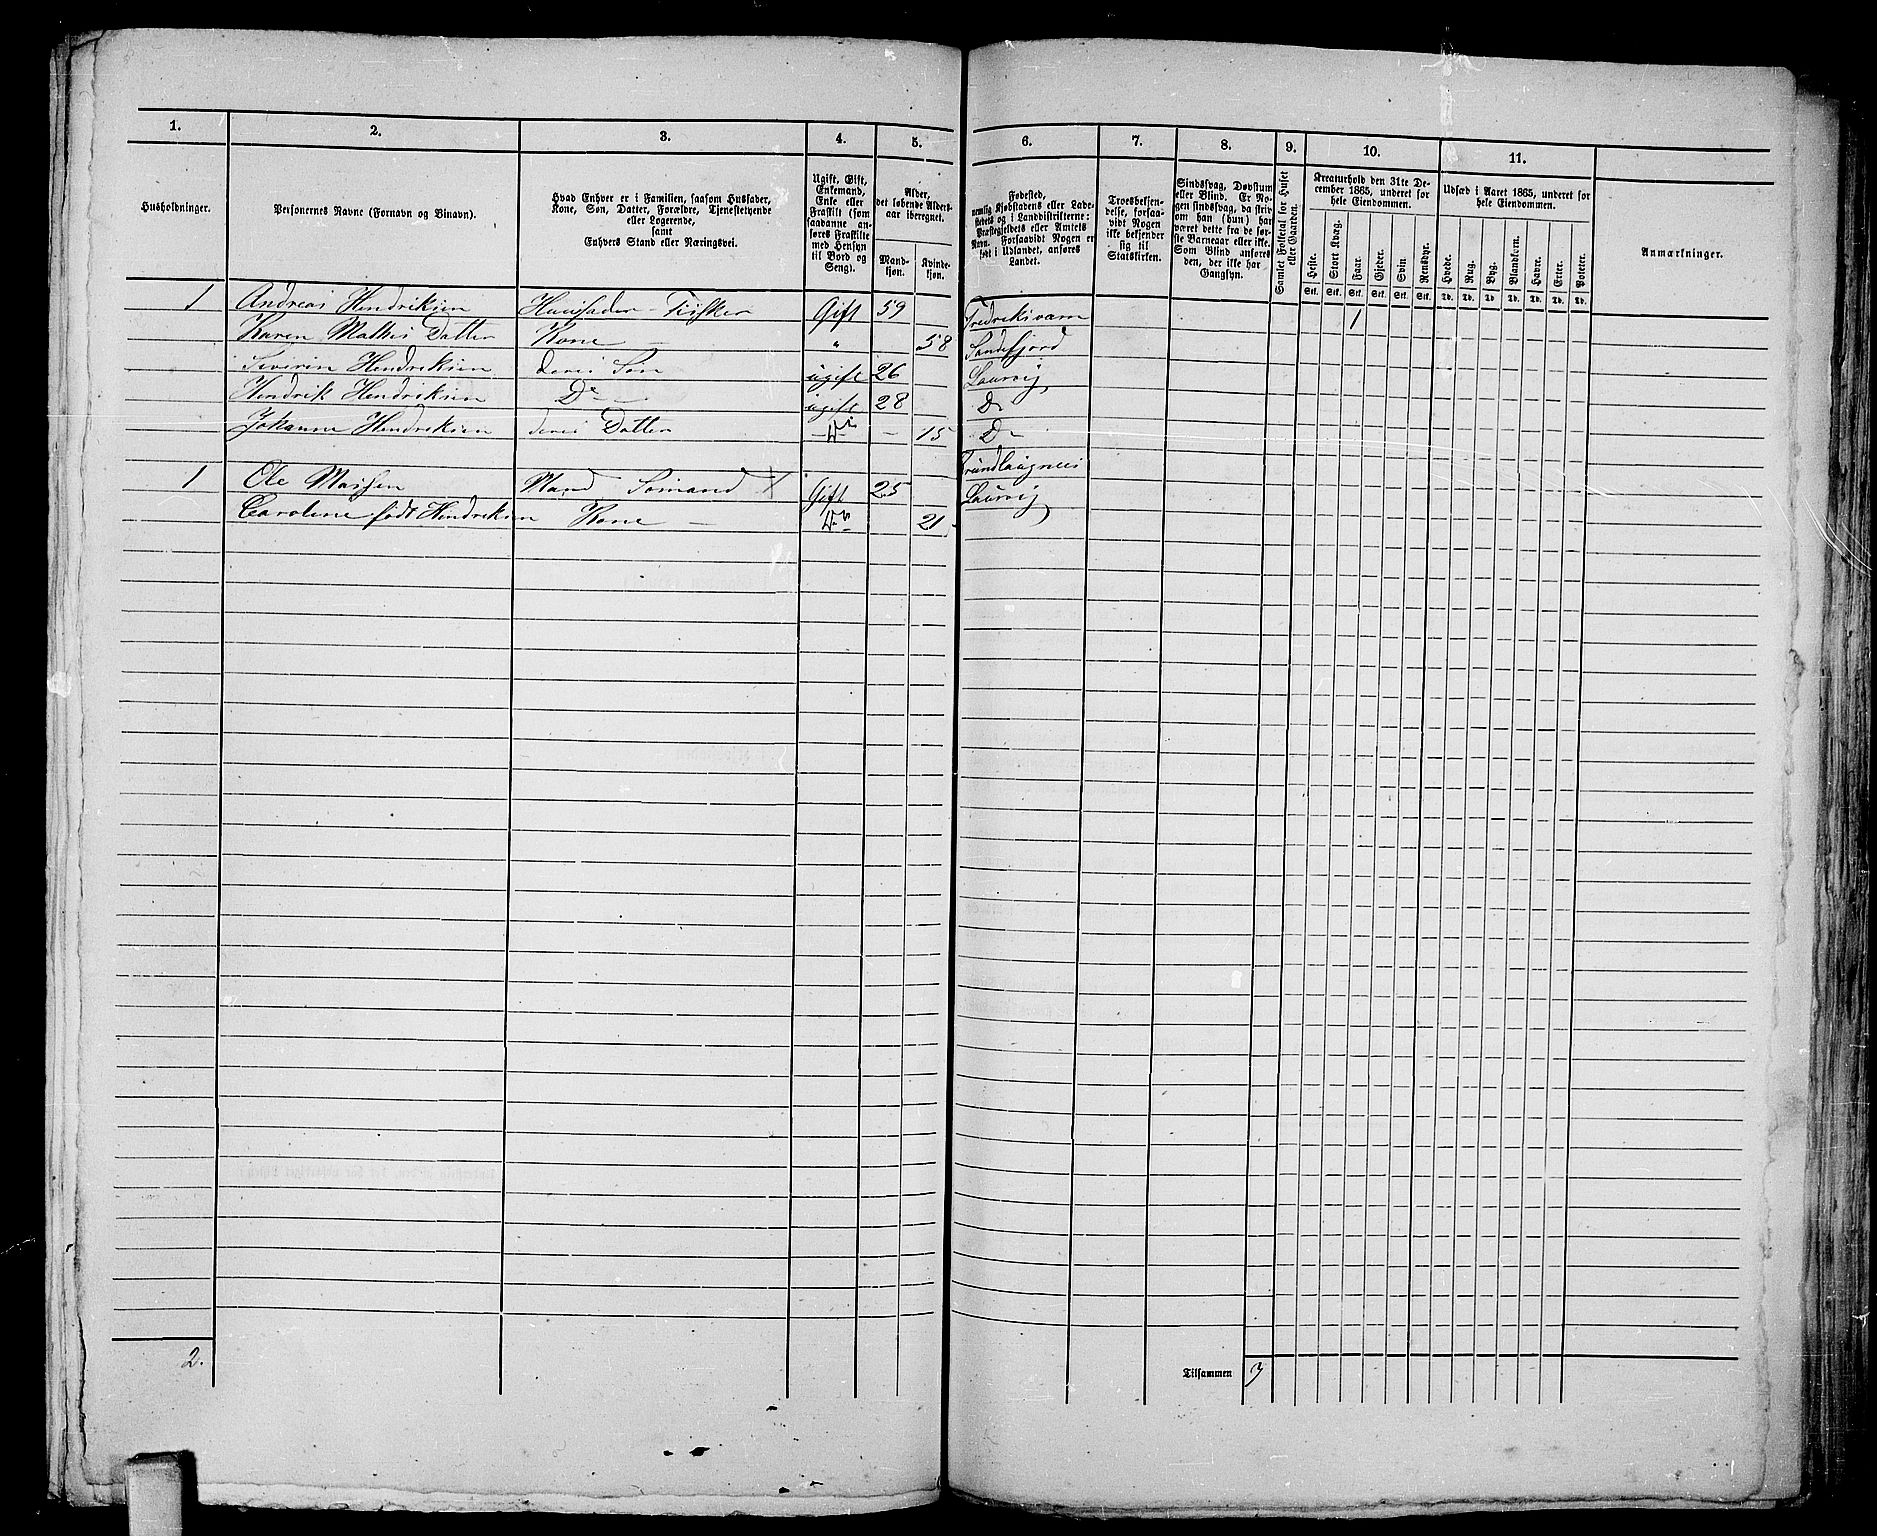 1. 2. 3. 4. 5. 6. 7. 8. 9. 10. 11.
Husholdninger.
Personernes Navne (Fornavn og Binavn).
Hvad Enhver er i Familien, saasom Husfader,
Kone, Søn, Datter, Forældre, Tjenestetyende
eller Logerende,
samt
Enhvers Stand eller Næringsvei.
Ugift, Gift,
Enkemand,
Enke eller
Fraskilt (som
saadanne an-
føres Fraskilte
med Hensyn
til Bord og
Seng).
Alder,
det løbende Alders-
aar iberegnet.
Mand-
kjøn.
Kvinde-
kjøn.
Fødested,
nemlig Kjøbstadens eller Lade-
stedets og i Landdistrikterne:
Præstegjeldets eller Amtets
Navn. Forsaavidt Nogen er
født i Udlandet, anføres
Landet.
Troesbekjen-
delse, forsaa-
vidt Nogen
ikke bekjender
sig til
Statskirken.
Sindssvag, Døvstum
eller Blind. Er No-
gen sindssvag, da skriv
om han (hun) har
været dette fra de før-
ste Barneaar eller ikke.
Som Blind anføres
den, der ikke har
Gangsyn.
Samlet Folketal for Huset
eller Gaarden.
Kreaturhold den 31te De-
cember 1865, underet for
hele Eiendommen.
Heste. Stort Kvæg. Faar. Gjeder. Svin. Rensdyr.
Stk. Stk. Stk. Stk. Stk. Stk.
Udsæd i Aaret 1865, underet for
hele Eiendommen.
Hvede. Rug. Byg. Blandkorn. Havre. Erter. Poteter.
Td. Td. Td. Td. Td. Td. Td.
Anmærkninger.
1 Andreas Hendriksen Huusfader - Fisker Gift 59 Fredriksværn 1
Karen Mathis Datter Kone - " 58 Sandefjord
Siverin Hendriksen deres Søn ugift 26 Laurvig
Hendrik Hendriksen Do - ugift 28 Do
Johanne Hendriksen deres Datter Do - 15 Do -
1 Ole Mathsen Mand Sømand Gift 25
Caroline født Hendriksen Kone - Do 21 Laurvig
2.
Tilsammen 3